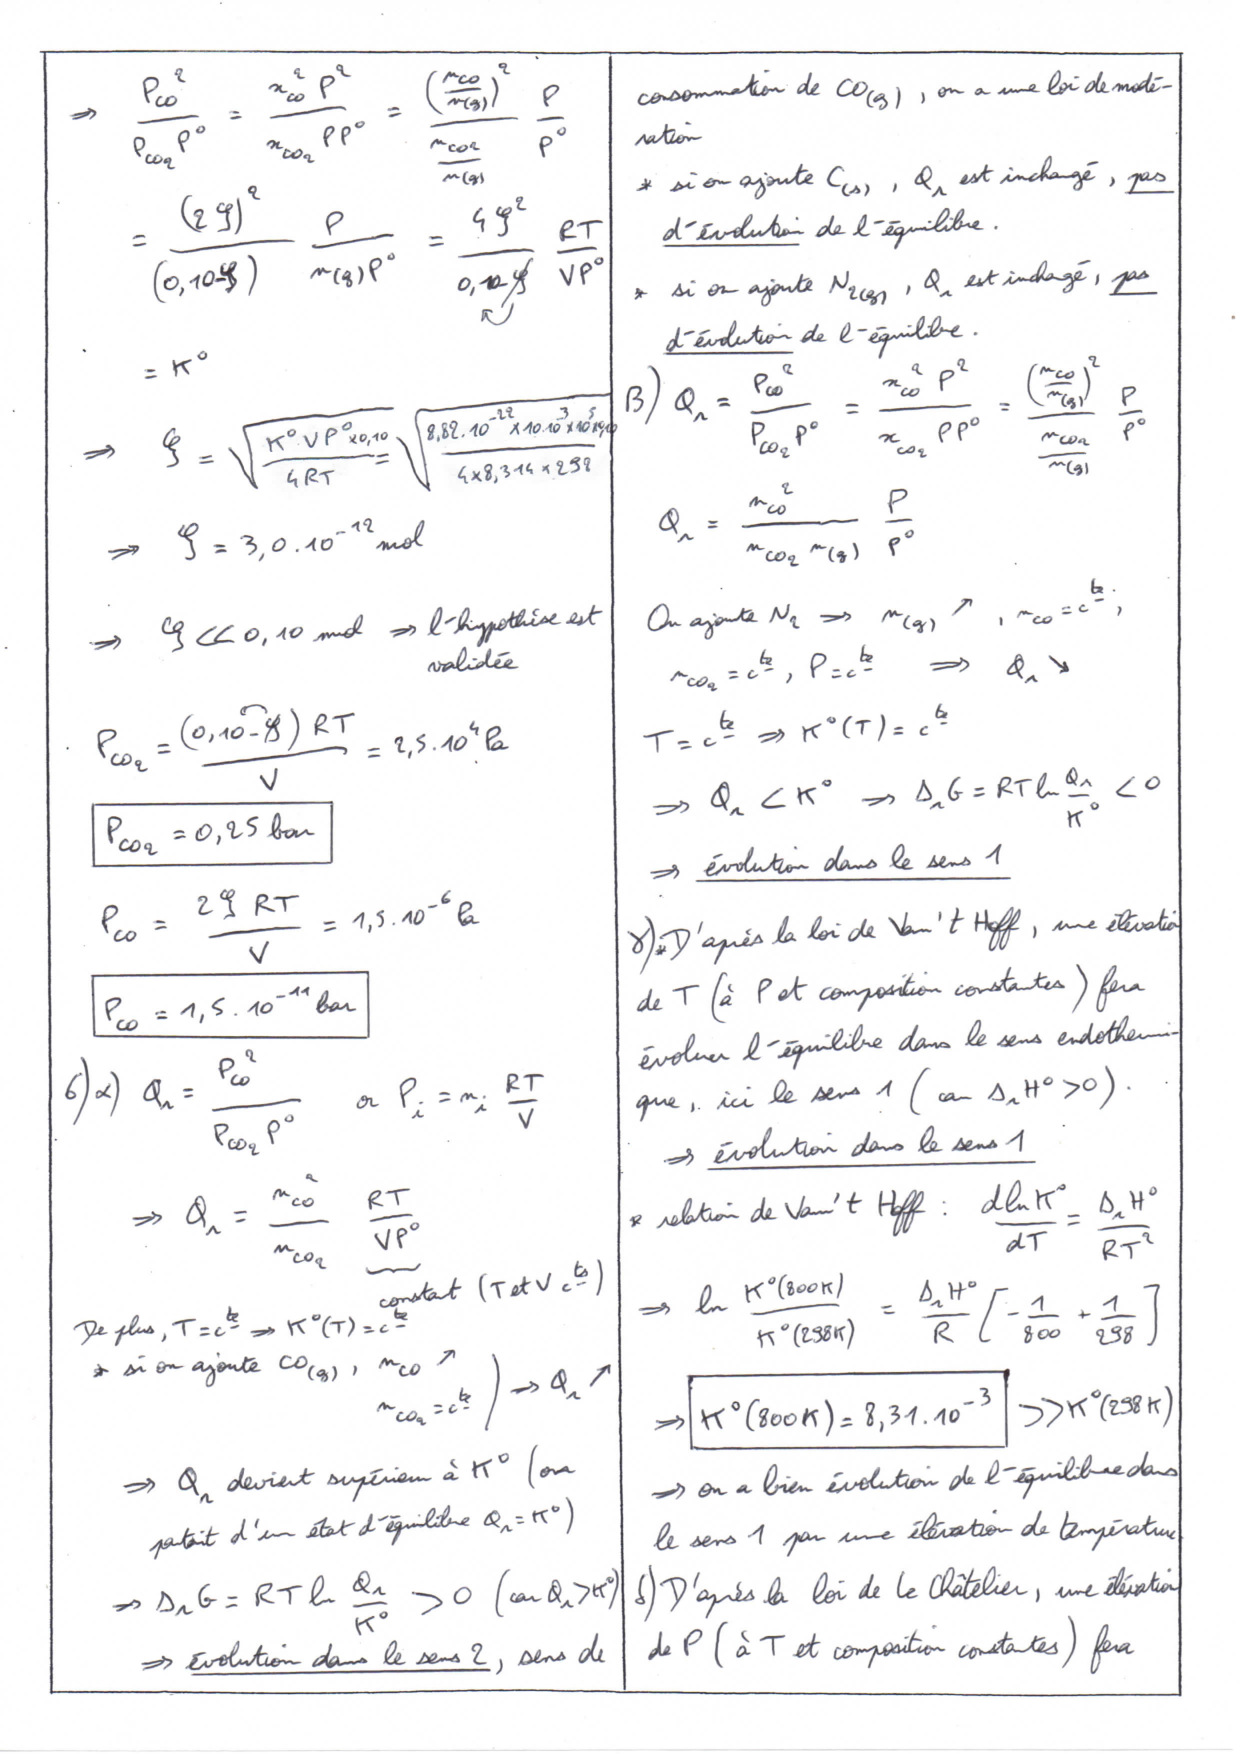 ⇒ P_CO² / (P_CO₂ P°) = x_CO² P² / (x_CO₂ P P°) = (n_CO/n(g))² / (n_CO₂/n(g)) P/P°
= (2ξ)² / (0,10-ξ) P/(n(g)P°) = 4ξ² / (0,10-ξ) RT/VP°
= K°
⇒ ξ = √(K° V P° × 0,10 / 4RT) = √(8,82.10⁻²² × 10.10⁻³ × 10⁵ × 0,10 / 4×8,314×298)
⇒ ξ = 3,0.10⁻¹² mol
⇒ ξ << 0,10 mol ⇒ l'hypothèse est
validée
P_CO₂ = (0,10-ξ) RT / V = 2,5.10⁴ Pa
P_CO₂ = 0,25 bar
P_CO = 2ξ RT / V = 1,5.10⁻⁶ Pa
P_CO = 1,5.10⁻¹¹ bar
6) α) Qr = P_CO² / (P_CO₂ P°) or P_i = n_i RT/V
⇒ Qr = n_CO² / n_CO₂ RT/VP°
constant (T et V cte)
De plus, T = cte ⇒ K°(T) = cte
* si on ajoute CO(g), n_CO ↗
n_CO₂ = cte ) ⇒ Qr ↗
⇒ Qr devient supérieur à K° (on
partait d'un état d'équilibre Qr = K°)
⇒ ΔrG = RT ln Qr/K° > 0 (car Qr > K°)
⇒ évolution dans le sens 2, sens de
consommation de CO(g), on a une loi de modé-
ration
* si on ajoute C(s), Qr est inchangé, pas
d'évolution de l'équilibre.
* si on ajoute N₂(g), Qr est inchangé, pas
d'évolution de l'équilibre.
β) Qr = P_CO² / (P_CO₂ P°) = x_CO² P² / (x_CO₂ P P°) = (n_CO/n(g))² / (n_CO₂/n(g)) P/P°
Qr = n_CO² / (n_CO₂ n(g)) P/P°
On ajoute N₂ ⇒ n(g) ↗, n_CO = cte,
n_CO₂ = cte, P = cte ⇒ Qr ↘
T = cte ⇒ K°(T) = cte
⇒ Qr < K° ⇒ ΔrG = RT ln Qr/K° < 0
⇒ évolution dans le sens 1
γ) * D'après la loi de Van't Hoff, une élévation
de T (à P et composition constantes) fera
évoluer l'équilibre dans le sens endothermi-
que, ici le sens 1 (car ΔrH° > 0).
⇒ évolution dans le sens 1
* relation de Van't Hoff : dlnK°/dT = ΔrH°/RT²
⇒ ln K°(800K)/K°(298K) = ΔrH°/R [-1/800 + 1/298]
⇒ K°(800K) = 8,31.10⁻³ >> K°(298K)
⇒ on a bien évolution de l'équilibre dans
le sens 1 par une élévation de température
δ) D'après la loi de Le Châtelier, une élévation
de P (à T et composition constantes) fera